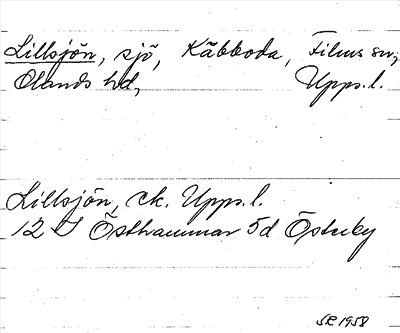 Lillsjön, sjö, Käbboda, Films sn,
Olands hd, Upps. l.
Lillsjön, ek. Upps. l.
12 I Östhammar 5d Österby
SR 1958